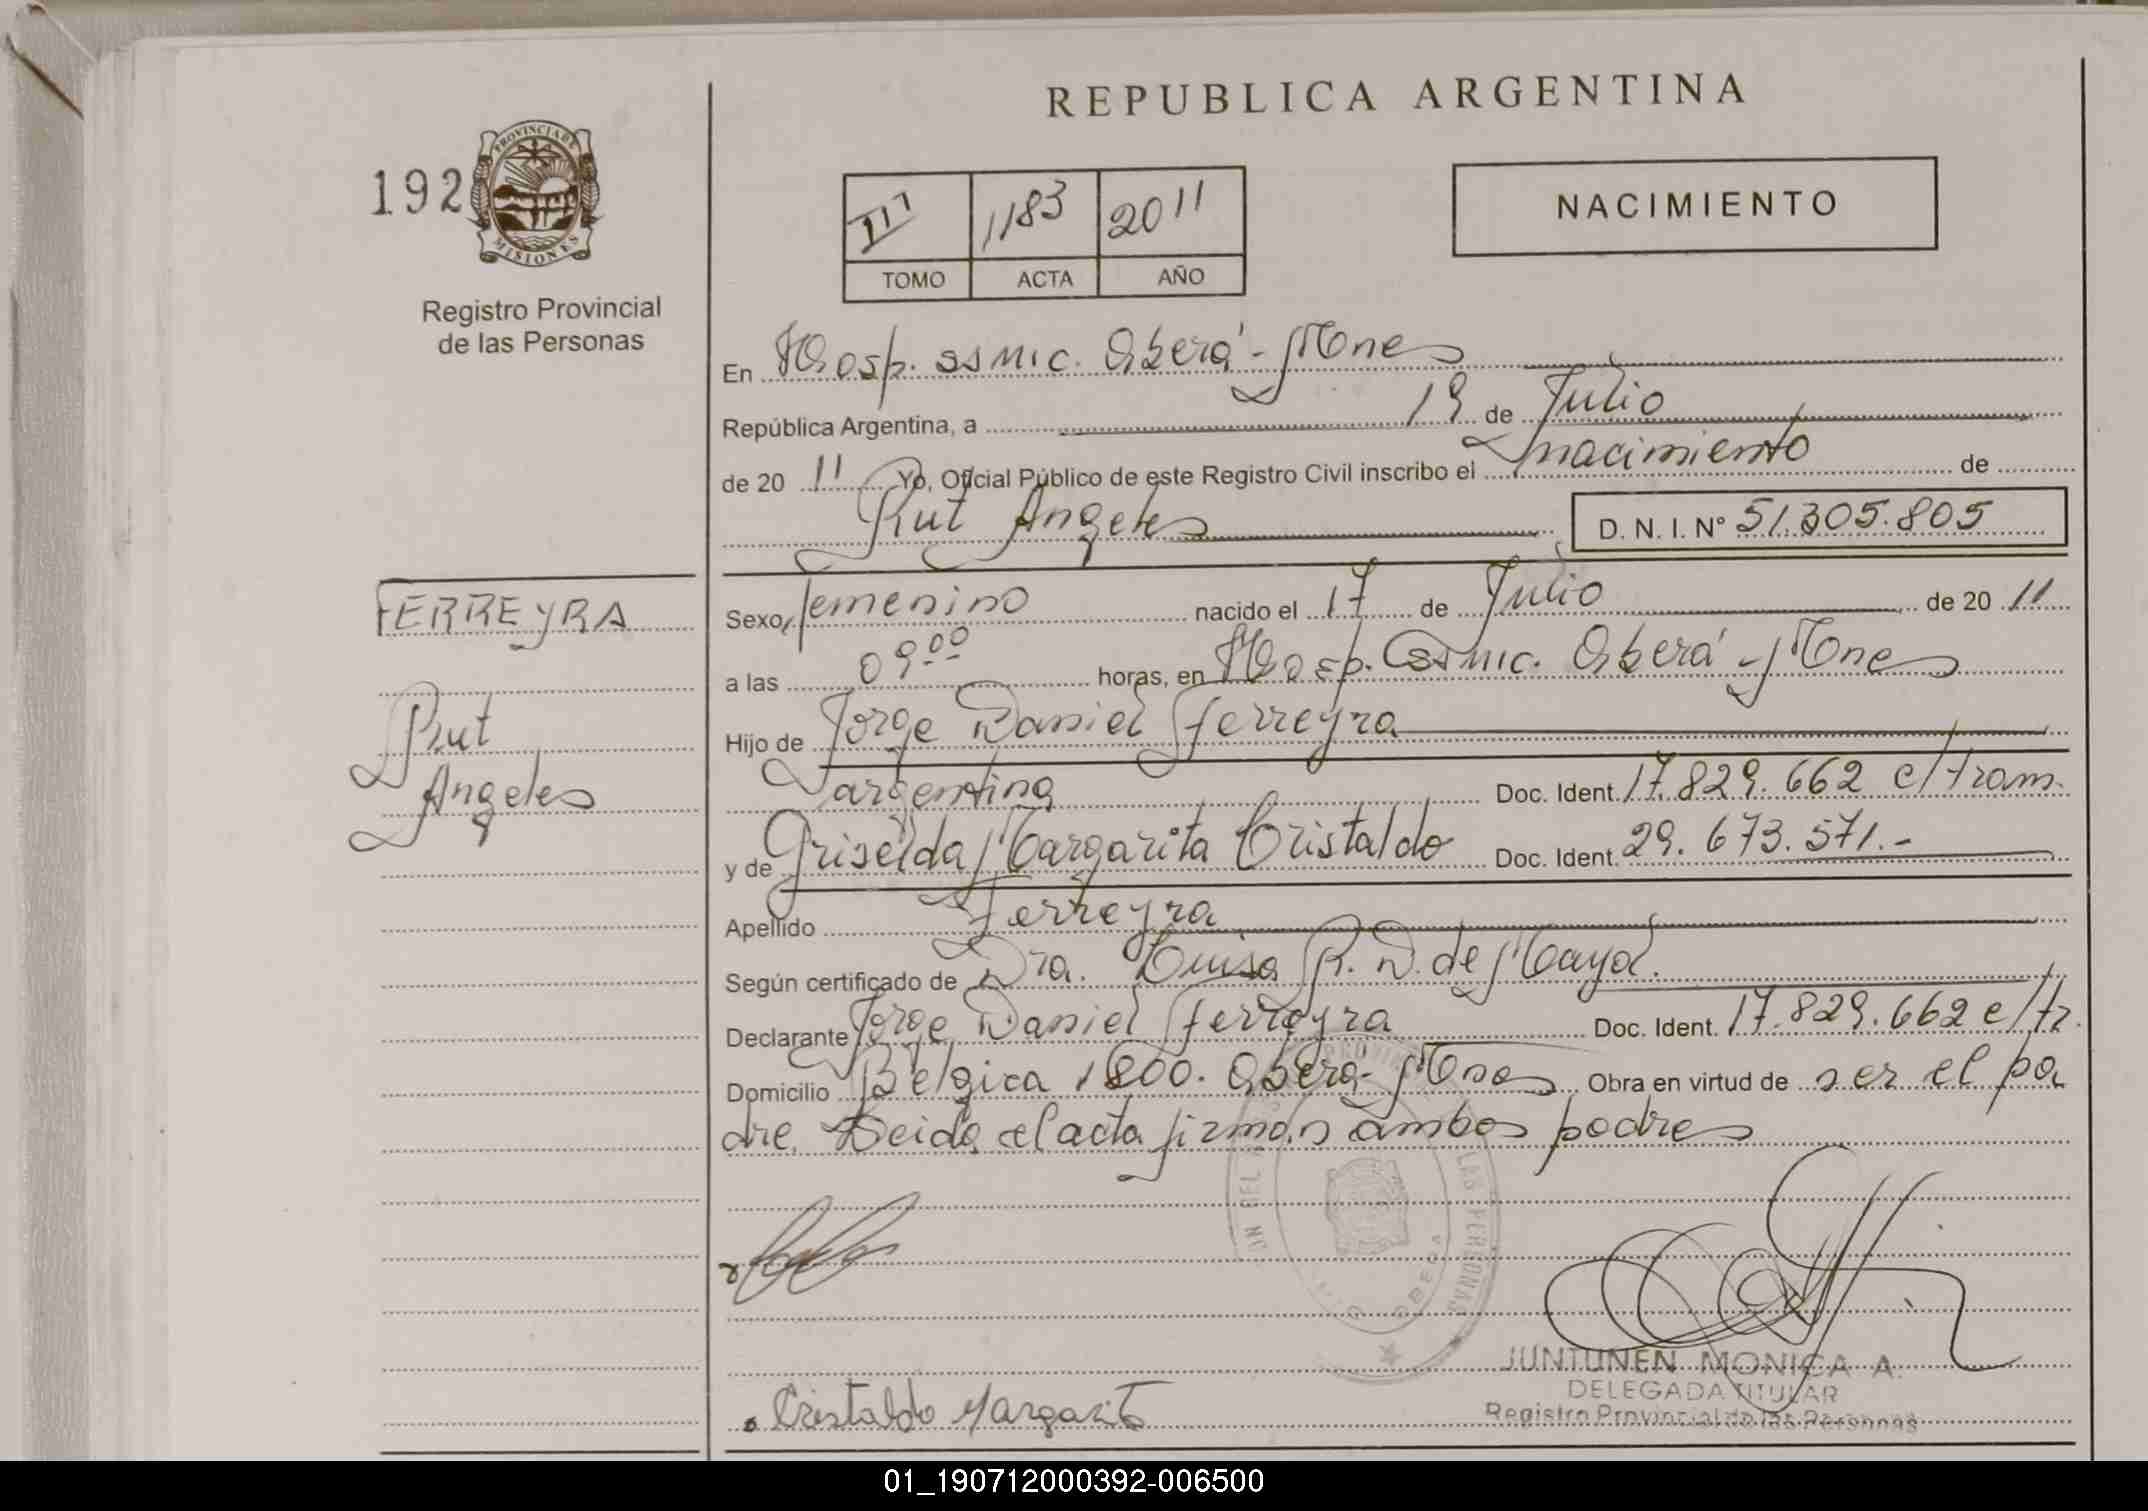 REPUBLICA ARGENTINA
192
PROVINCIA DE MISIONES
Registro Provincial
de las Personas
III 1183 2011
TOMO ACTA AÑO
NACIMIENTO
En Hosp. Ssmic. Oberá - Mnes
República Argentina, a 19 de Julio
de 20 11 Yo, Oficial Público de este Registro Civil inscribo el nacimiento de
Rut Angeles D. N. I. Nº 51.305.805
FERREYRA
Rut
Angeles
Sexo femenino nacido el 17 de Julio de 20 11
a las 09:00 horas, en Hosp. Ssmic. Oberá - Mnes
Hijo de Jorge Daniel Ferreyra
argentina Doc. Ident. 17.829.662 c/tram.
y de Griselda Margarita Cristaldo Doc. Ident. 29.673.571.-
Apellido Ferreyra
Según certificado de Dra. Luisa R. D. de Mayol.
Declarante Jorge Daniel Ferreyra Doc. Ident. 17.829.662 c/tr.
Domicilio Bélgica 1800. Oberá - Mnes Obra en virtud de ser el pa
dre. Leida el acta firman ambos padres
LAS PERSONAS
OBERA
Cristaldo Margarita
JUNTUNEN MONICA A.
DELEGADA TITULAR
Registro Provincial de las Personas
01_190712000392-006500